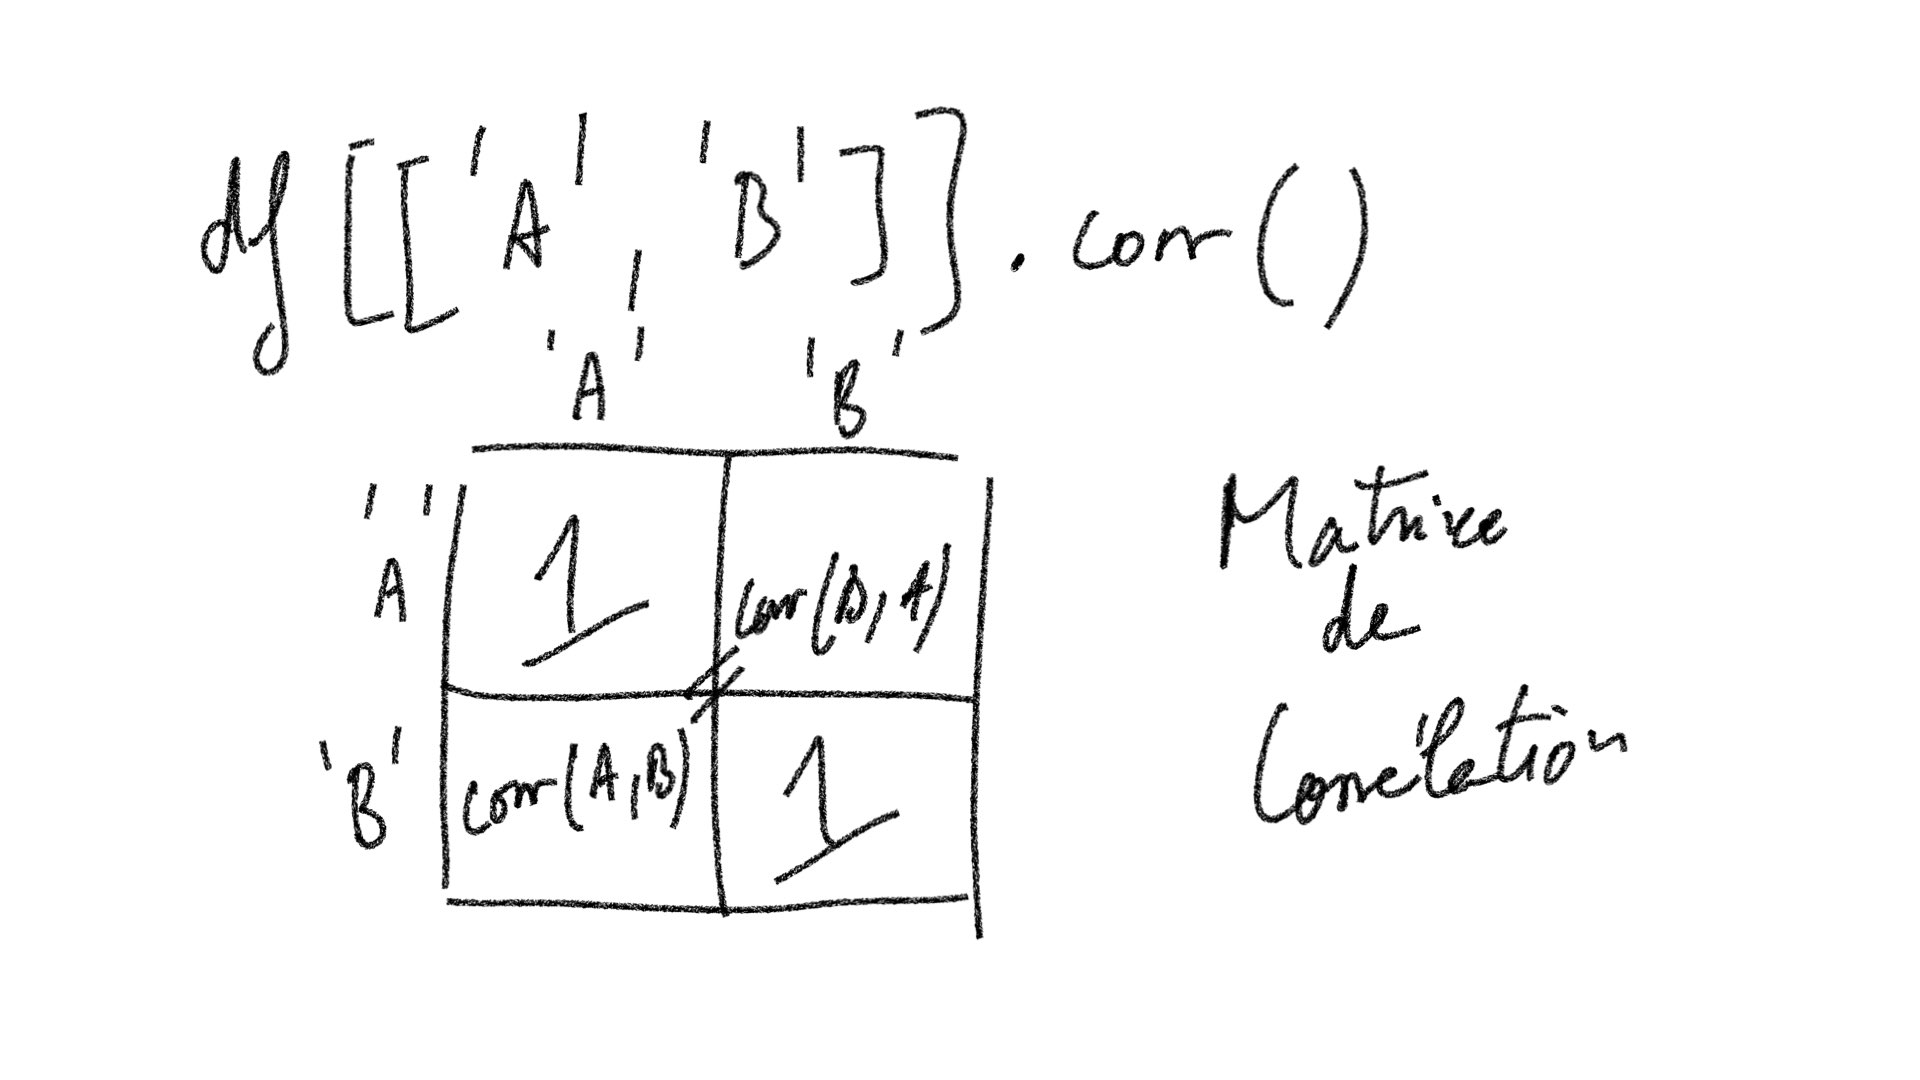 df[['A', 'B']].corr()
'A' 'B'
'A' 1 corr(B, A)
'B' corr(A,B) 1
Matrice
de
Corrélation